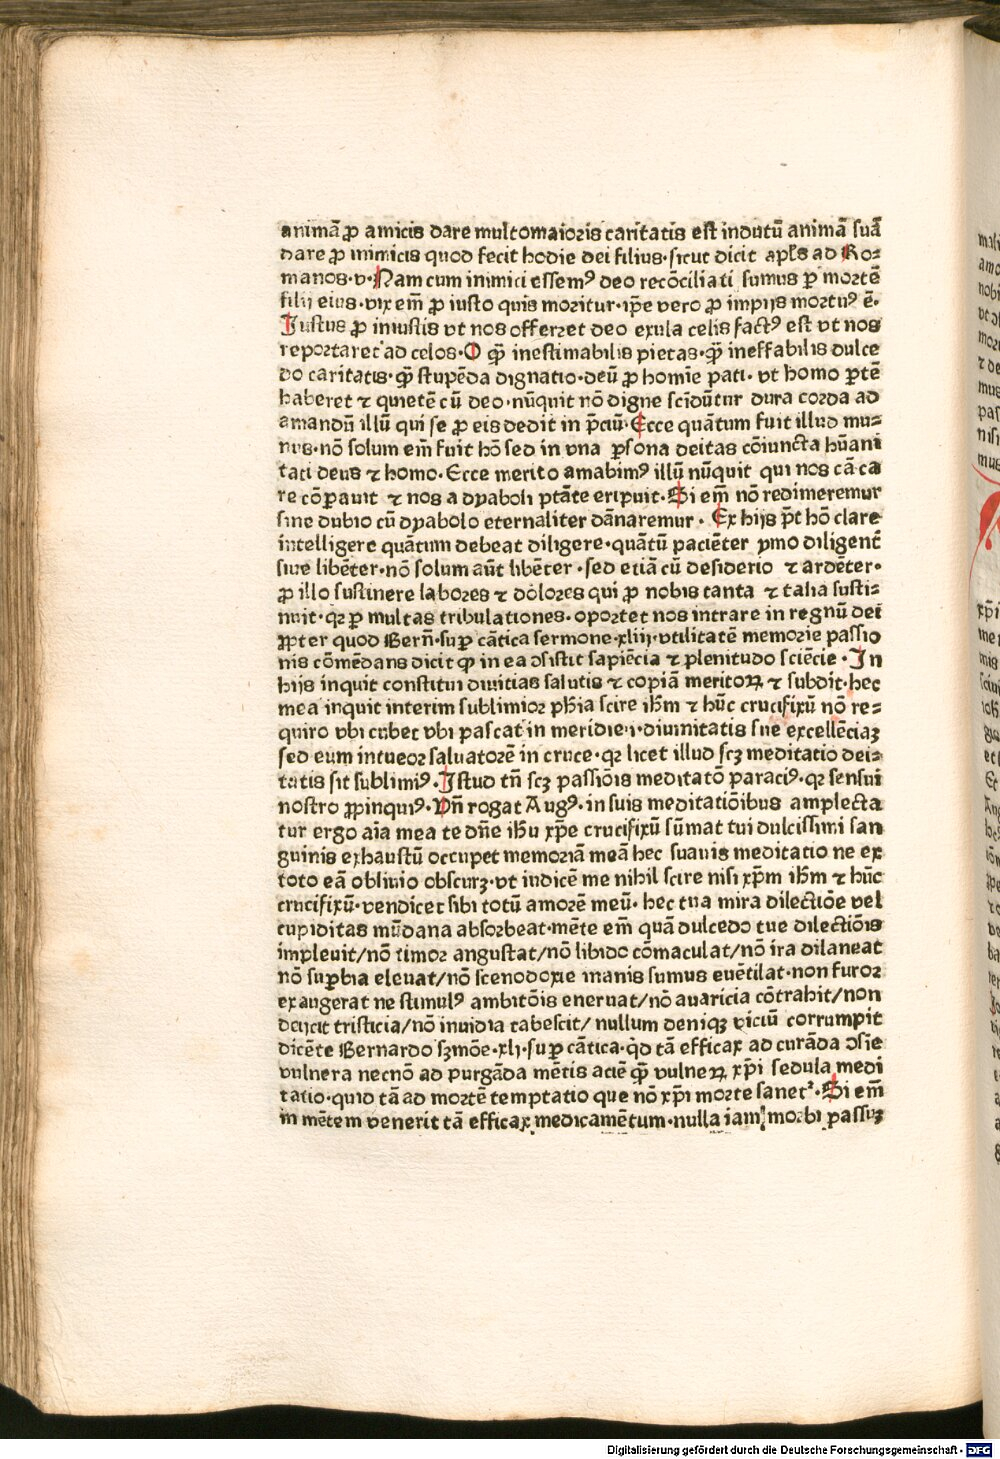 animā ꝓ amicis dare multomaioris caritatis est indutū animā suā
dare ꝓ inimicis quod fecit hodie dei filius·sicut dicit apl̄s ad Ro⸗
manos·v·Nam cum inimici essemꝰ deo recōciliati sumus ꝑ mortē
filij eius·vix em̄ ꝓ iusto quis moritur·ip̄e vero ꝓ impijs mortuꝰ ē·
Iustus ꝓ iniustis vt nos offerret deo exula celis factꝰ est vt nos
reportaret ad celos·O q̄ꝫ inestimabilis pietas·q̄ꝫ ineffabilis dulce
do caritatis·q̄ꝫ stupēda dignatio·deū ꝓ homīe pati· vt homo ꝑtē
haberet ⁊ quietē cū deo·nūquit nō digne scīdūtur dura corda ad
amandū illū qui se ꝓ eis dedit in p̄ciū·Ecce quātum fuit illud mu⸗
nus·nō solum em̄ fuit hō sed in vna ꝑsona deitas cōiuncta hūani
tati deus ⁊ homo·Ecce merito amabimꝰ illū nūquit qui nos cā ca
re cōꝑauit ⁊ nos a dyaboli ptāte eripuit·Si em̄ nō redimeremur
sine dubio cū dyabolo eternaliter dānaremur· Ex hijs p̄t hō clare
intelligere quātum debeat diligere·quātū paciēter pmo diligent̄
siue libēter·nō solum aūt libēter·sed etiā cū desiderio ⁊ ardēter·
ꝓ illo sustinere labores ⁊ dolores qui ꝓ nobis tanta ⁊ talia susti⸗
nuit·qꝛ ꝑ multas tribulationes·oportet nos intrare in regnū dei
ꝓpter quod Bern̄·suꝑ cātica sermone·xliij·vtilitatē memorie passio
nis cōmēdans dicit ꝙ in ea ↄsistit sapiēcia ⁊ plenitudo sciēcie·In
hijs inquit constitui diuitias salutis ⁊ copiā meritoꝝ ⁊ subdit·hec
mea inquit interim sublimior ph̄ia scire ih̄m ⁊ hūc crucifixū nō re⸗
quiro vbi cubet vbi pascat in meridie·i·diuinitatis sue excellēciaꝫ
sed eum intueor saluatorē in cruce·qꝛ licet illud scꝫ meditatio dei⸗
tatis sit sublimiꝰ·Istud tn̄ scꝫ passiōis meditatō paraciꝰ·qꝛ sensui
nostro ꝓpinquiꝰ·Vn̄ rogat Augꝰ·in suis meditatiōibus amplecta
tur ergo aīa mea te dn̄e ih̄u xp̄e crucifixū sūmat tui dulcissimi san
guinis exhaustū occupet memoriā meā hec suauis meditatio ne ex
toto eā obliuio obscurꝫ·vt iudicē me nihil scire nisi xp̄m ih̄m ⁊ hūc
crucifixū·vendicet sibi totū amorē meū· hec tua mira dilectiōe vel
cupiditas mūdana absorbeat·mēte em̄ quā dulcedo tue dilectiōis
impleuit/nō timor angustat/nō libido cōmaculat/nō ira dilaneat
nō suꝑbia eleuat/nō scenodoxie inanis fumus euētilat·non furor
exaugerat ne stimulꝰ ambitōis eneruat/nō auaricia cōtrahit/non
deijcit tristicia/nō inuidia tabescit/ nullum deniqꝫ viciū corrumpit
dicēte Bernardo sꝫmōe·xlj·suꝑ cātica·qd̄ tā efficax ad curāda ↄsīe
vulnera necnō ad purgāda mētis aciē q̄ꝫ vulneꝝ xp̄i sedula medi
tatio·quid tā ad mortē temptatio que nō xp̄i morte sanet²·Si em̄
in mētem venerit tā efficax medicamētum·nulla iam morbi passuꝫ
Digitalisierung gefördert durch die Deutsche Forschungsgemeinschaft - DFG